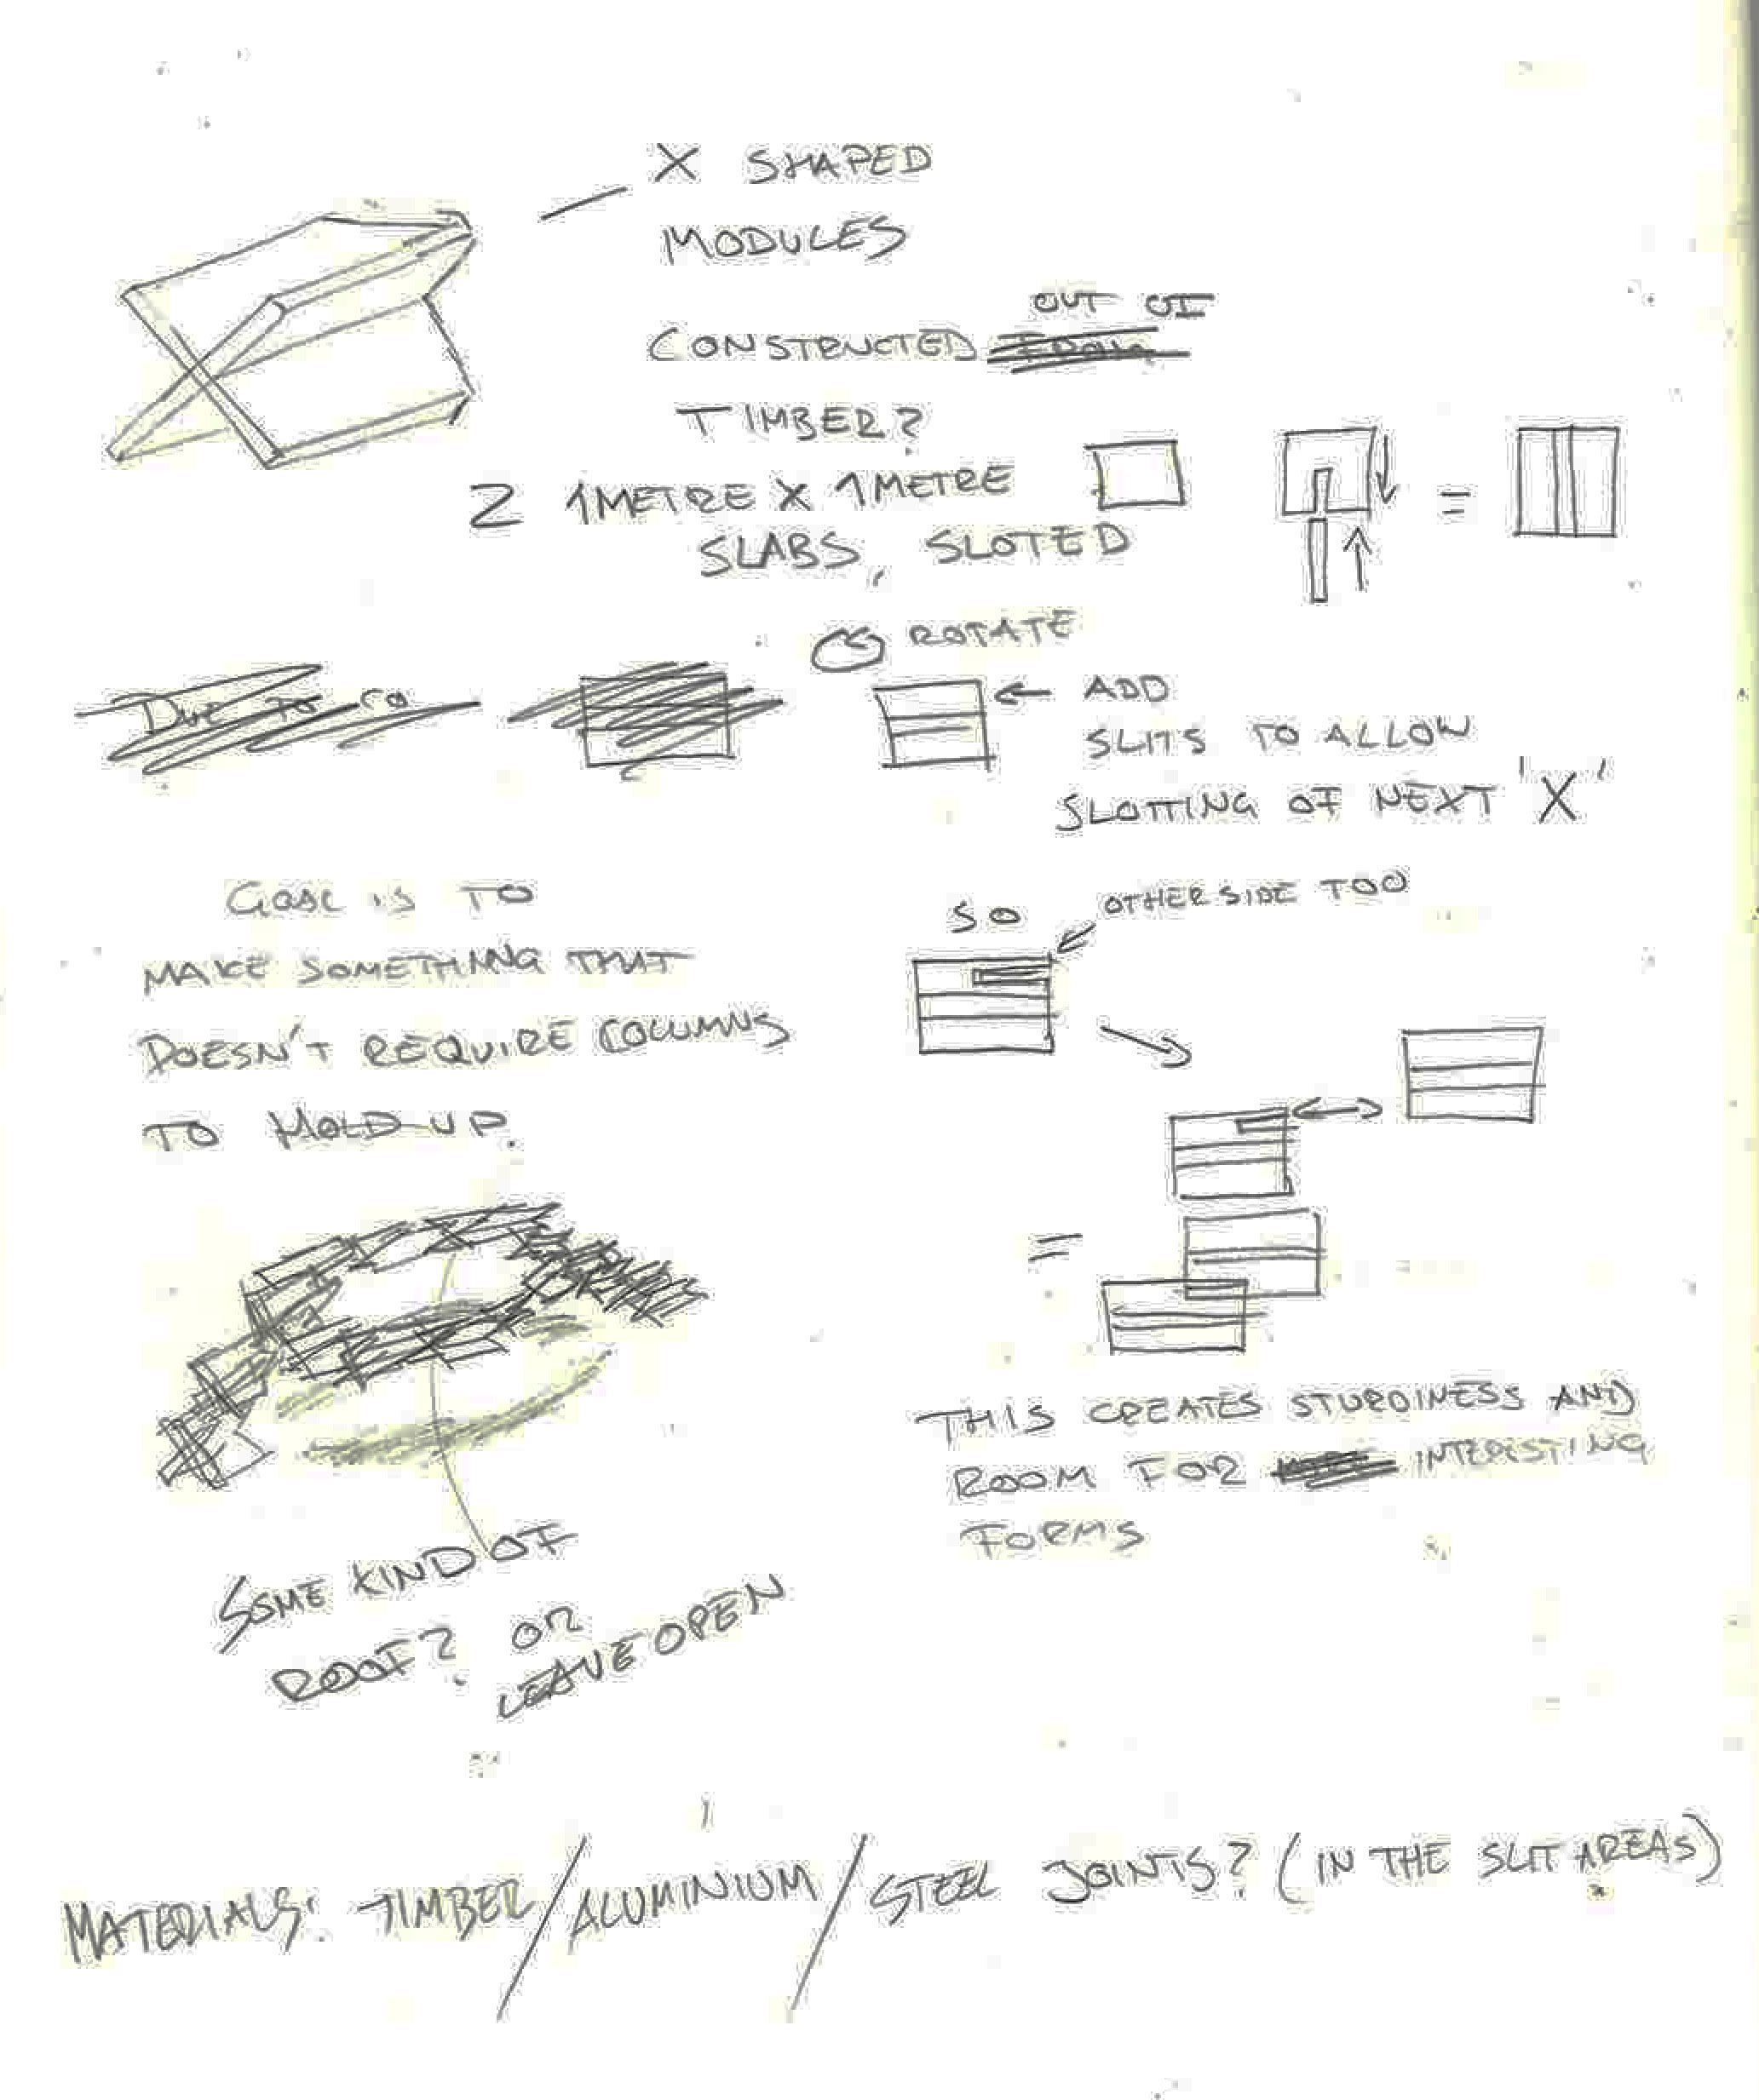 X SHAPED
MODULES
OUT OF
CONSTRUCTED FROM
TIMBER?
2 1METRE X 1METRE
SLABS, SLOTED
=
ROTATE
DUE TO CO
ADD
SLITS TO ALLOW
SLOTTING OF NEXT 'X'
GOAL IS TO
MAKE SOMETHING THAT
DOESN'T REQUIRE COLUMNS
TO HOLD UP.
SO
OTHER SIDE TOO
=
THIS CREATES STURDINESS AND
ROOM FOR INTERESTING
FORMS
SOME KIND OF
ROOF? OR
LEAVE OPEN
MATERIALS: TIMBER/ALUMINIUM/STEEL JOINTS? (IN THE SLIT AREAS)